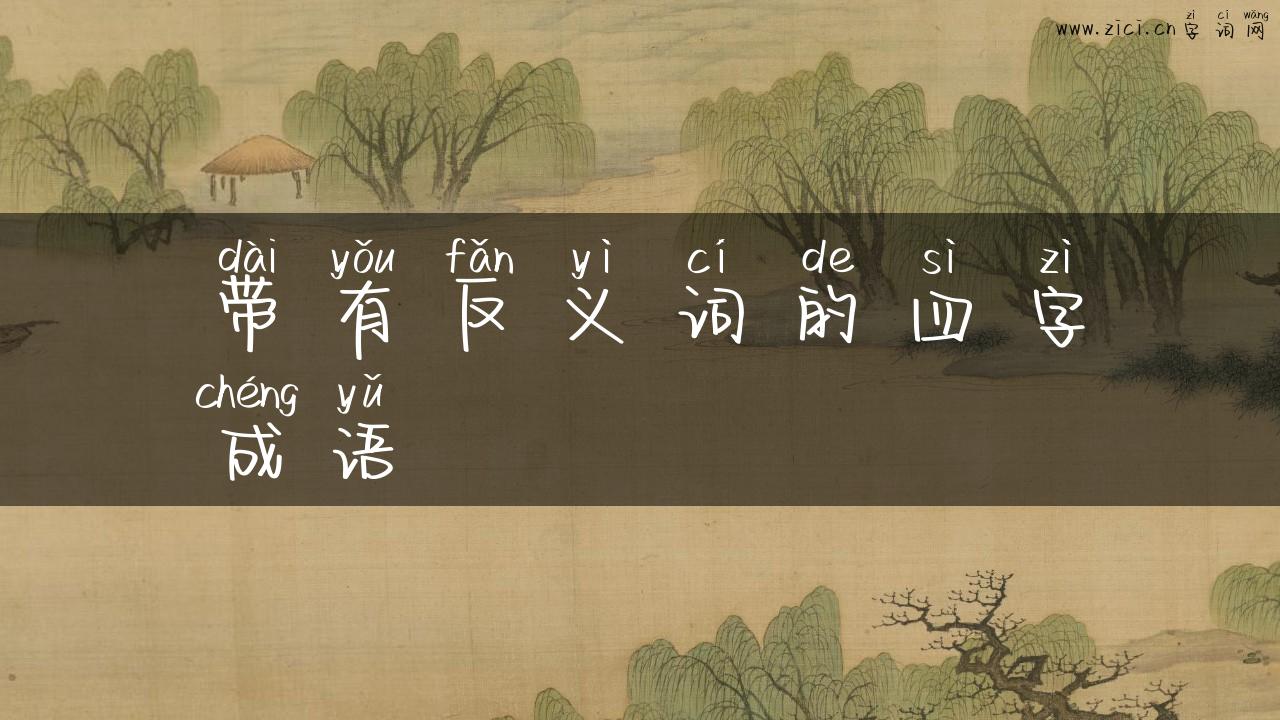 zì cí wǎng
www.zici.cn 字词网
dài yǒu fǎn yì cí de sì zì
带有反义词的四字
chéng yǔ
成语